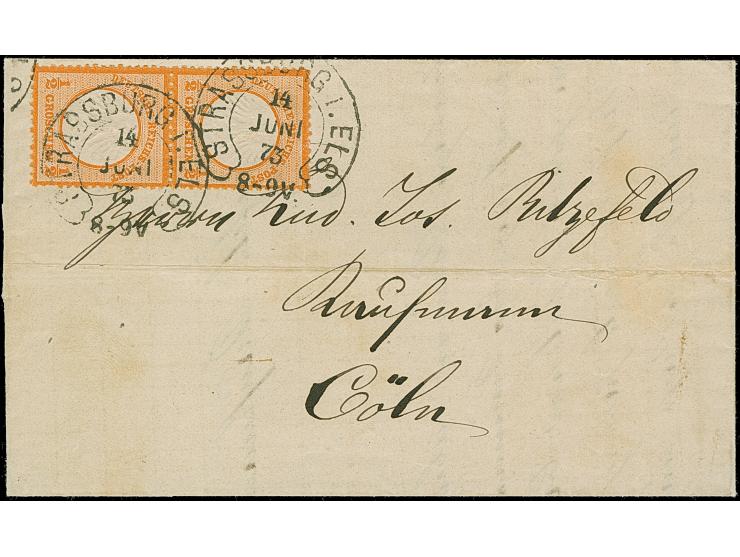 STRASSBURG I. ELS.
14
JUNI
73
8-9V
STRASSBURG I. ELS.
14
JUNI
73
8-9V
½
½
Herrn Rud. Jos. Ritzefeld
Kaufmann
Cöln